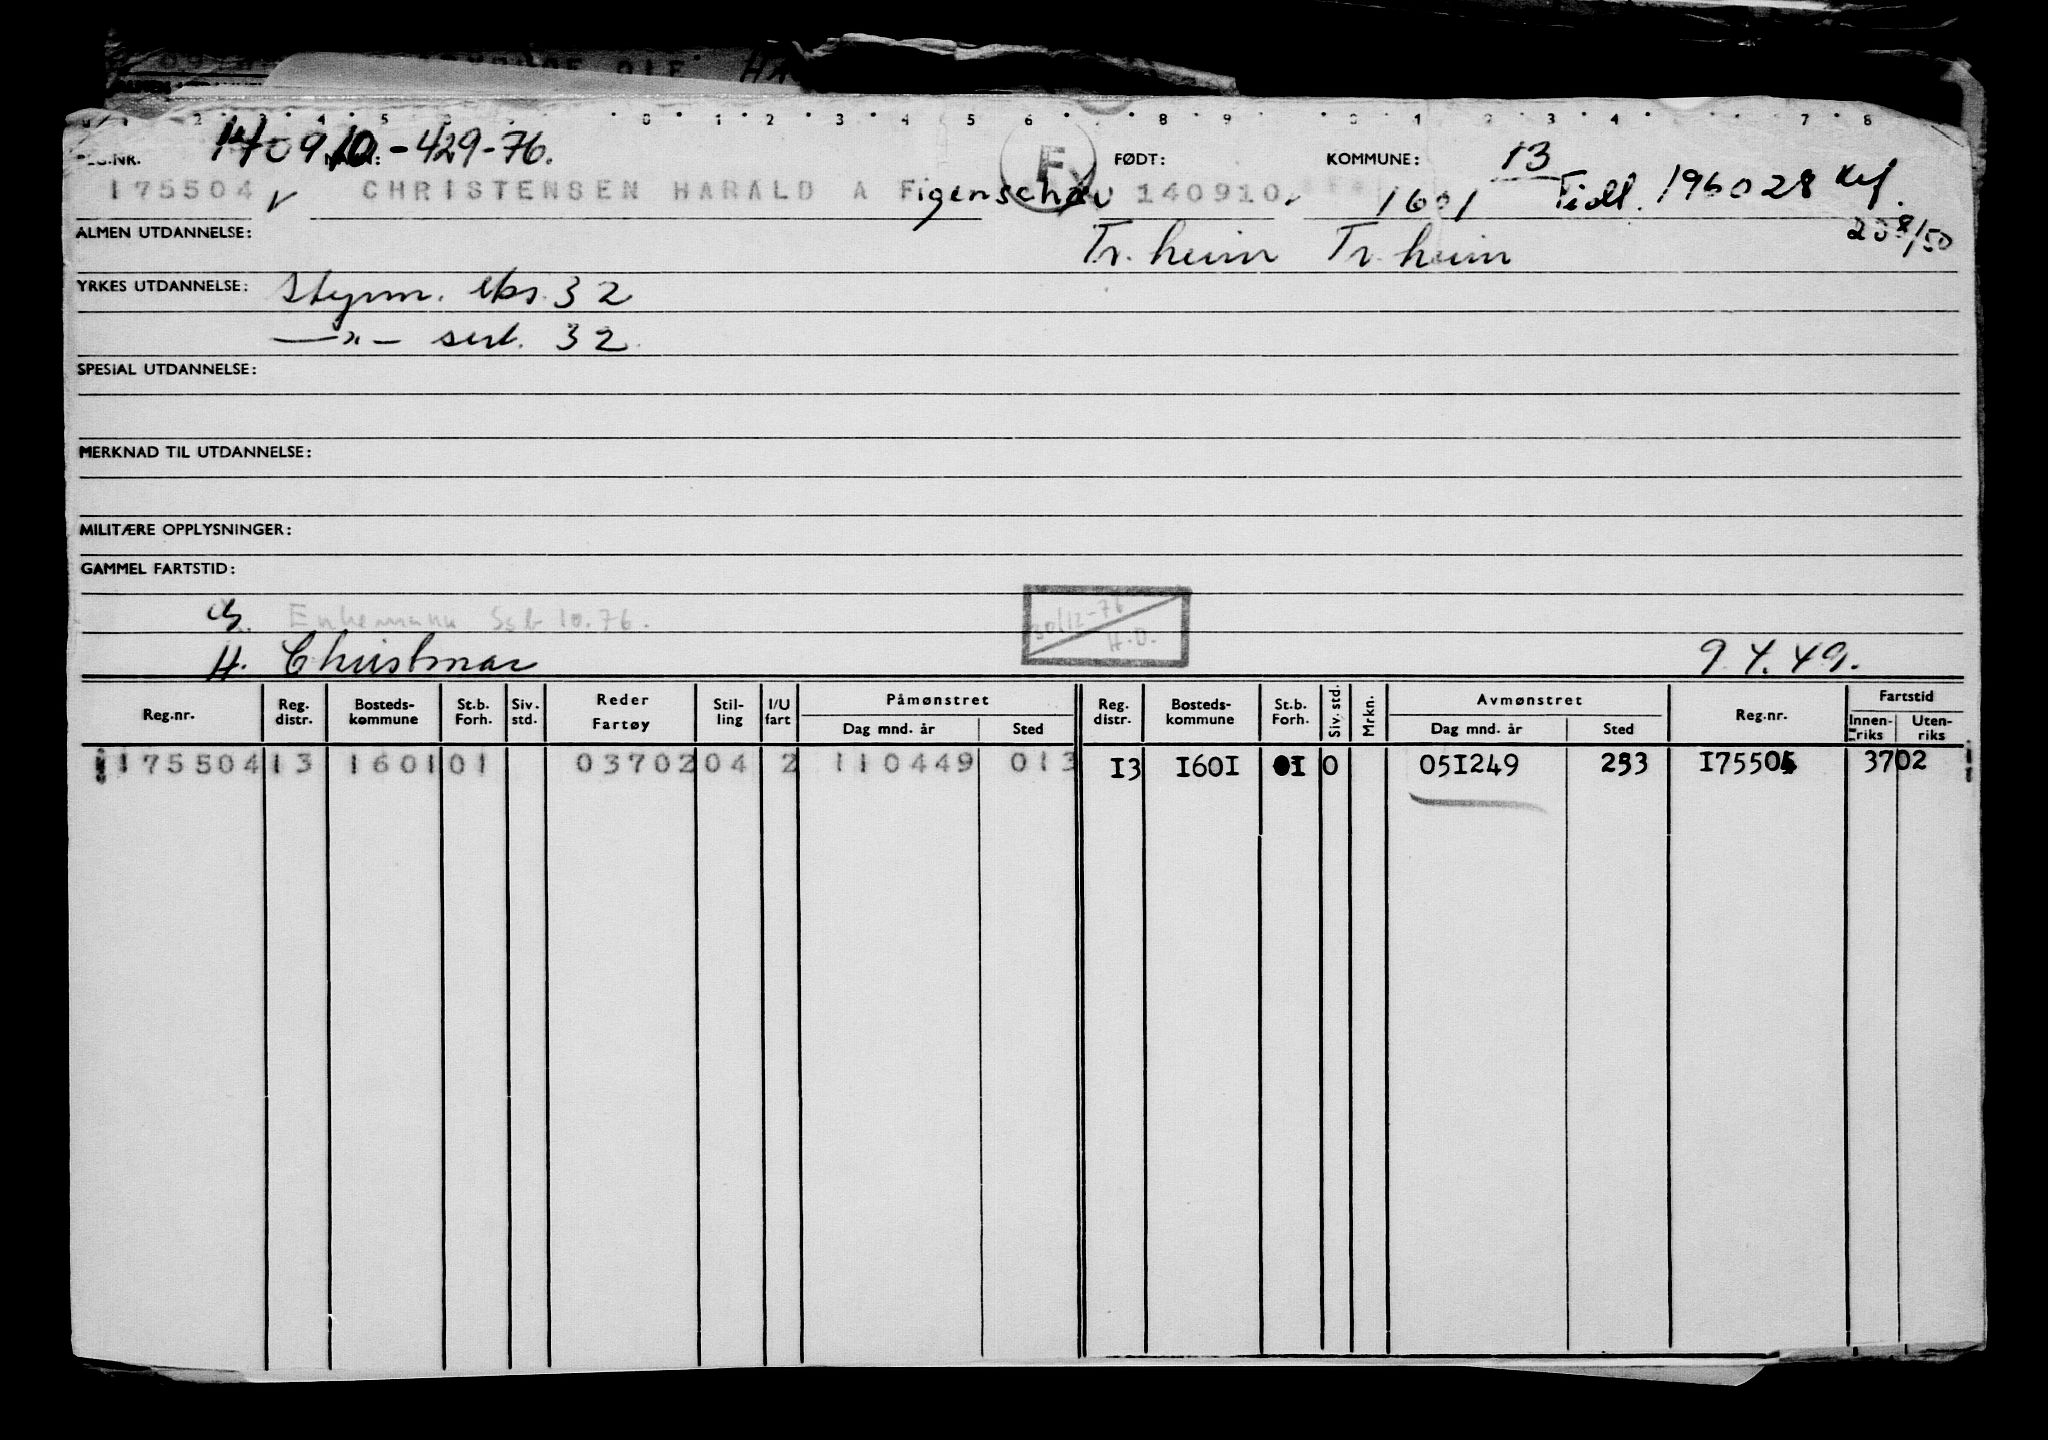 140910-429-76.
REG.NR. NAVN: F FØDT: KOMMUNE: 13
175504 CHRISTENSEN HARALD A Figenschau 140910 1601 Tidl. 196028
ALMEN UTDANNELSE: Tr.heim Tr.heim
YRKES UTDANNELSE: Styrm. eks. 32
—"— sert. 32
SPESIAL UTDANNELSE:
MERKNAD TIL UTDANNELSE:
MILITÆRE OPPLYSNINGER:
GAMMEL FARTSTID:
Enkemann Ssb 10.76. 30/12-76 H.O.
H. Christmar 9.4.49.
Reg.nr. Reg. distr. Bosteds- kommune St.b. Forh. Siv. std. Reder Fartøy Stil- ling I/U fart Påmønstret Dag mnd. år Sted Reg. distr. Bosteds- kommune St.b. Forh. Siv. std. Mrkn. Avmønstret Dag mnd. år Sted Reg.nr. Fartstid Innen- riks Uten- riks
175504 13 1601 01 03702 04 2 110449 013 I3 I60I 0I 0 05I249 253 I75504 3702